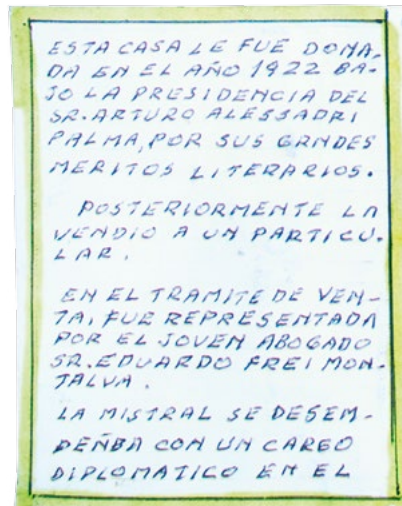 ESTA CASA LE FUE DONA-
DA EN EL AÑO 1922 BA-
JO LA PRESIDENCIA DEL
SR. ARTURO ALESSADRI
PALMA, POR SUS GRNDES
MERITOS LITERARIOS.
POSTERIORMENTE LA
VENDIO A UN PARTICU-
LAR.
EN EL TRAMITE DE VEN-
TA, FUE REPRESENTADA
POR EL JOVEN ABOGADO
SR. EDUARDO FREI MON-
TALVA.
LA MISTRAL SE DESEM-
PEÑBA CON UN CARGO
DIPLOMATICO EN EL